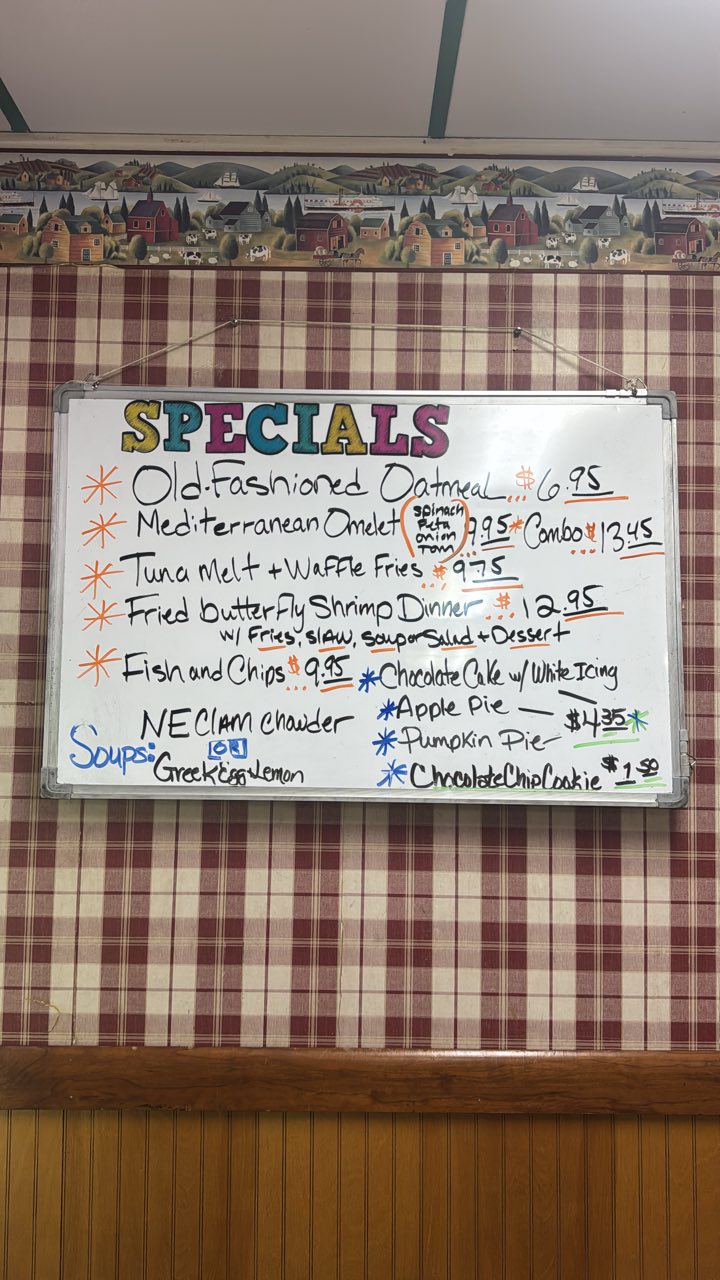 SPECIALS
* Old-Fashioned Oatmeal ... $6.95
* Mediterranean Omelet (Spinach Feta onion Tom) 9.95 * Combo $13.45
* Tuna Melt + Waffle Fries $9.75
* Fried butterfly Shrimp Dinner $12.95
w/ Fries, Slaw, Soup or Salad + Dessert
* Fish and Chips $9.95
* Chocolate Cake w/ White Icing
* Apple Pie — $4.35 *
* Pumpkin Pie
* Chocolate Chip Cookie $1.50
Soups:
NE Clam Chowder
OR
Greek Egg + Lemon